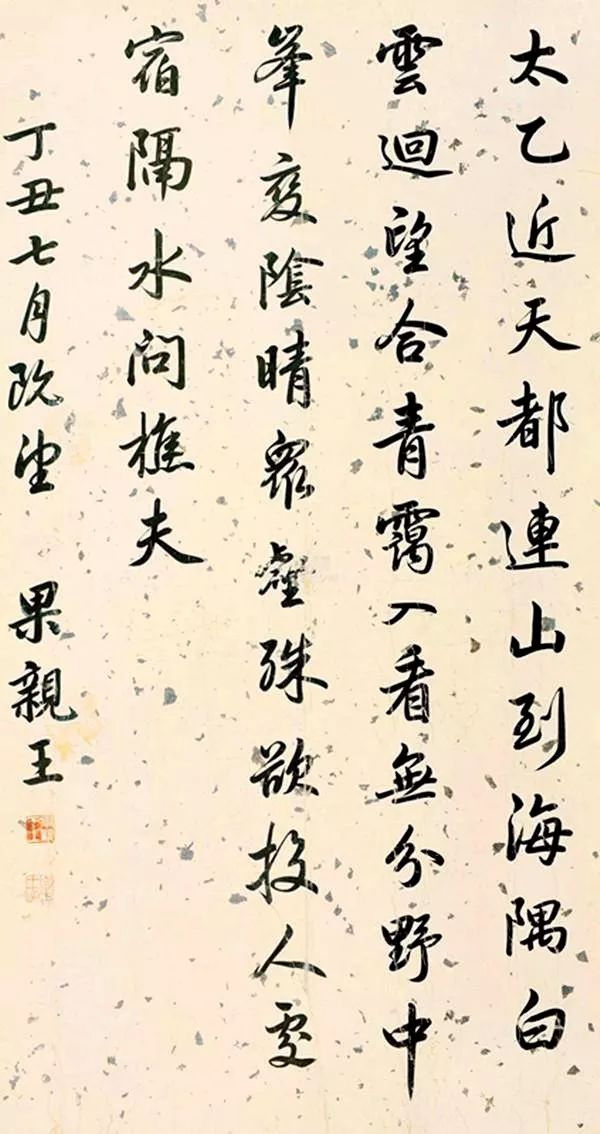 太乙近天都連山到海隅白
雲迴望合青靄入看無分野中
峯變陰晴衆壑殊欲投人處
宿隔水問樵夫
丁丑七月既望 果親王